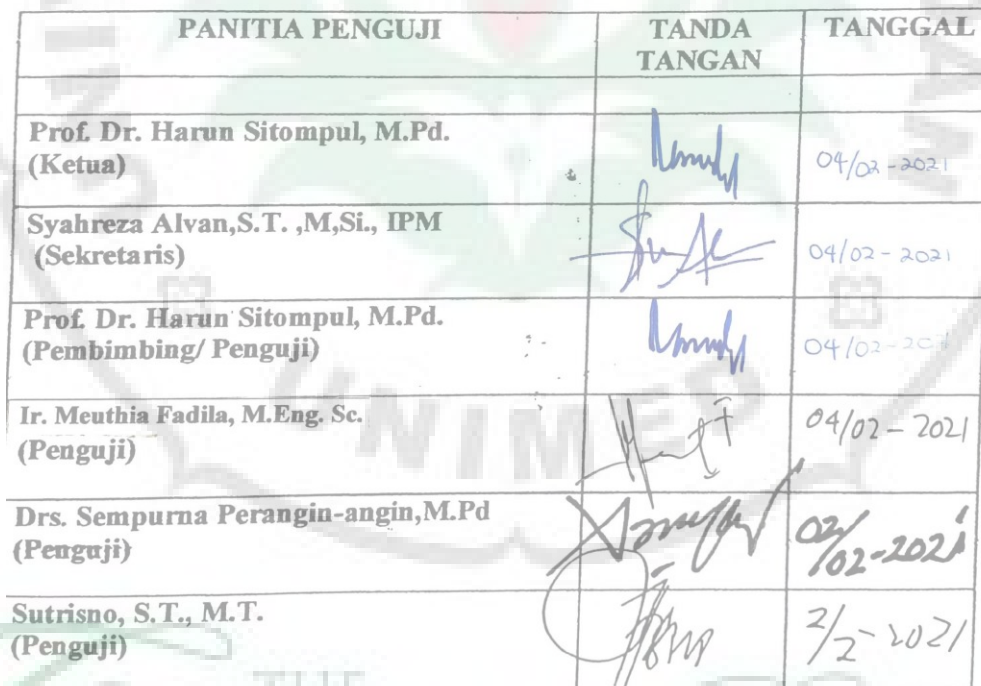 PANITIA PENGUJI
TANDA TANGAN
TANGGAL
Prof. Dr. Harun Sitompul, M.Pd.
(Ketua)
04/02-2021
Syahreza Alvan,S.T. ,M,Si., IPM
(Sekretaris)
04/02-2021
Prof. Dr. Harun Sitompul, M.Pd.
(Pembimbing/ Penguji)
04/02-
Ir. Meuthia Fadila, M.Eng. Sc.
(Penguji)
04/02-2021
Drs. Sempurna Perangin-angin,M.Pd
(Penguji)
02/02-2021
Sutrisno, S.T., M.T.
(Penguji)
2/2-2021
UNIMED
THE